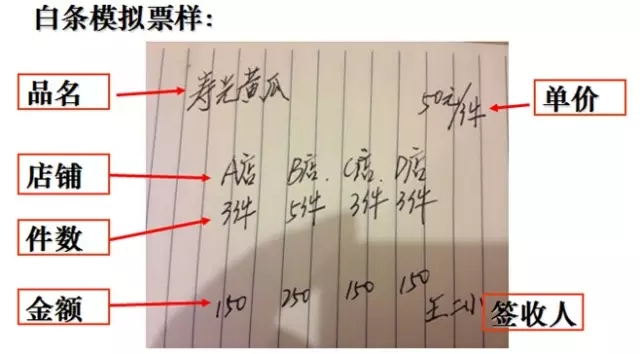 白条模拟票样:
品名 寿光黄瓜 50元/件 单价
店铺 A店 B店. C店. D店
件数 3件 5件 3件 3件
金额 150 250 150 150 王二小 签收人